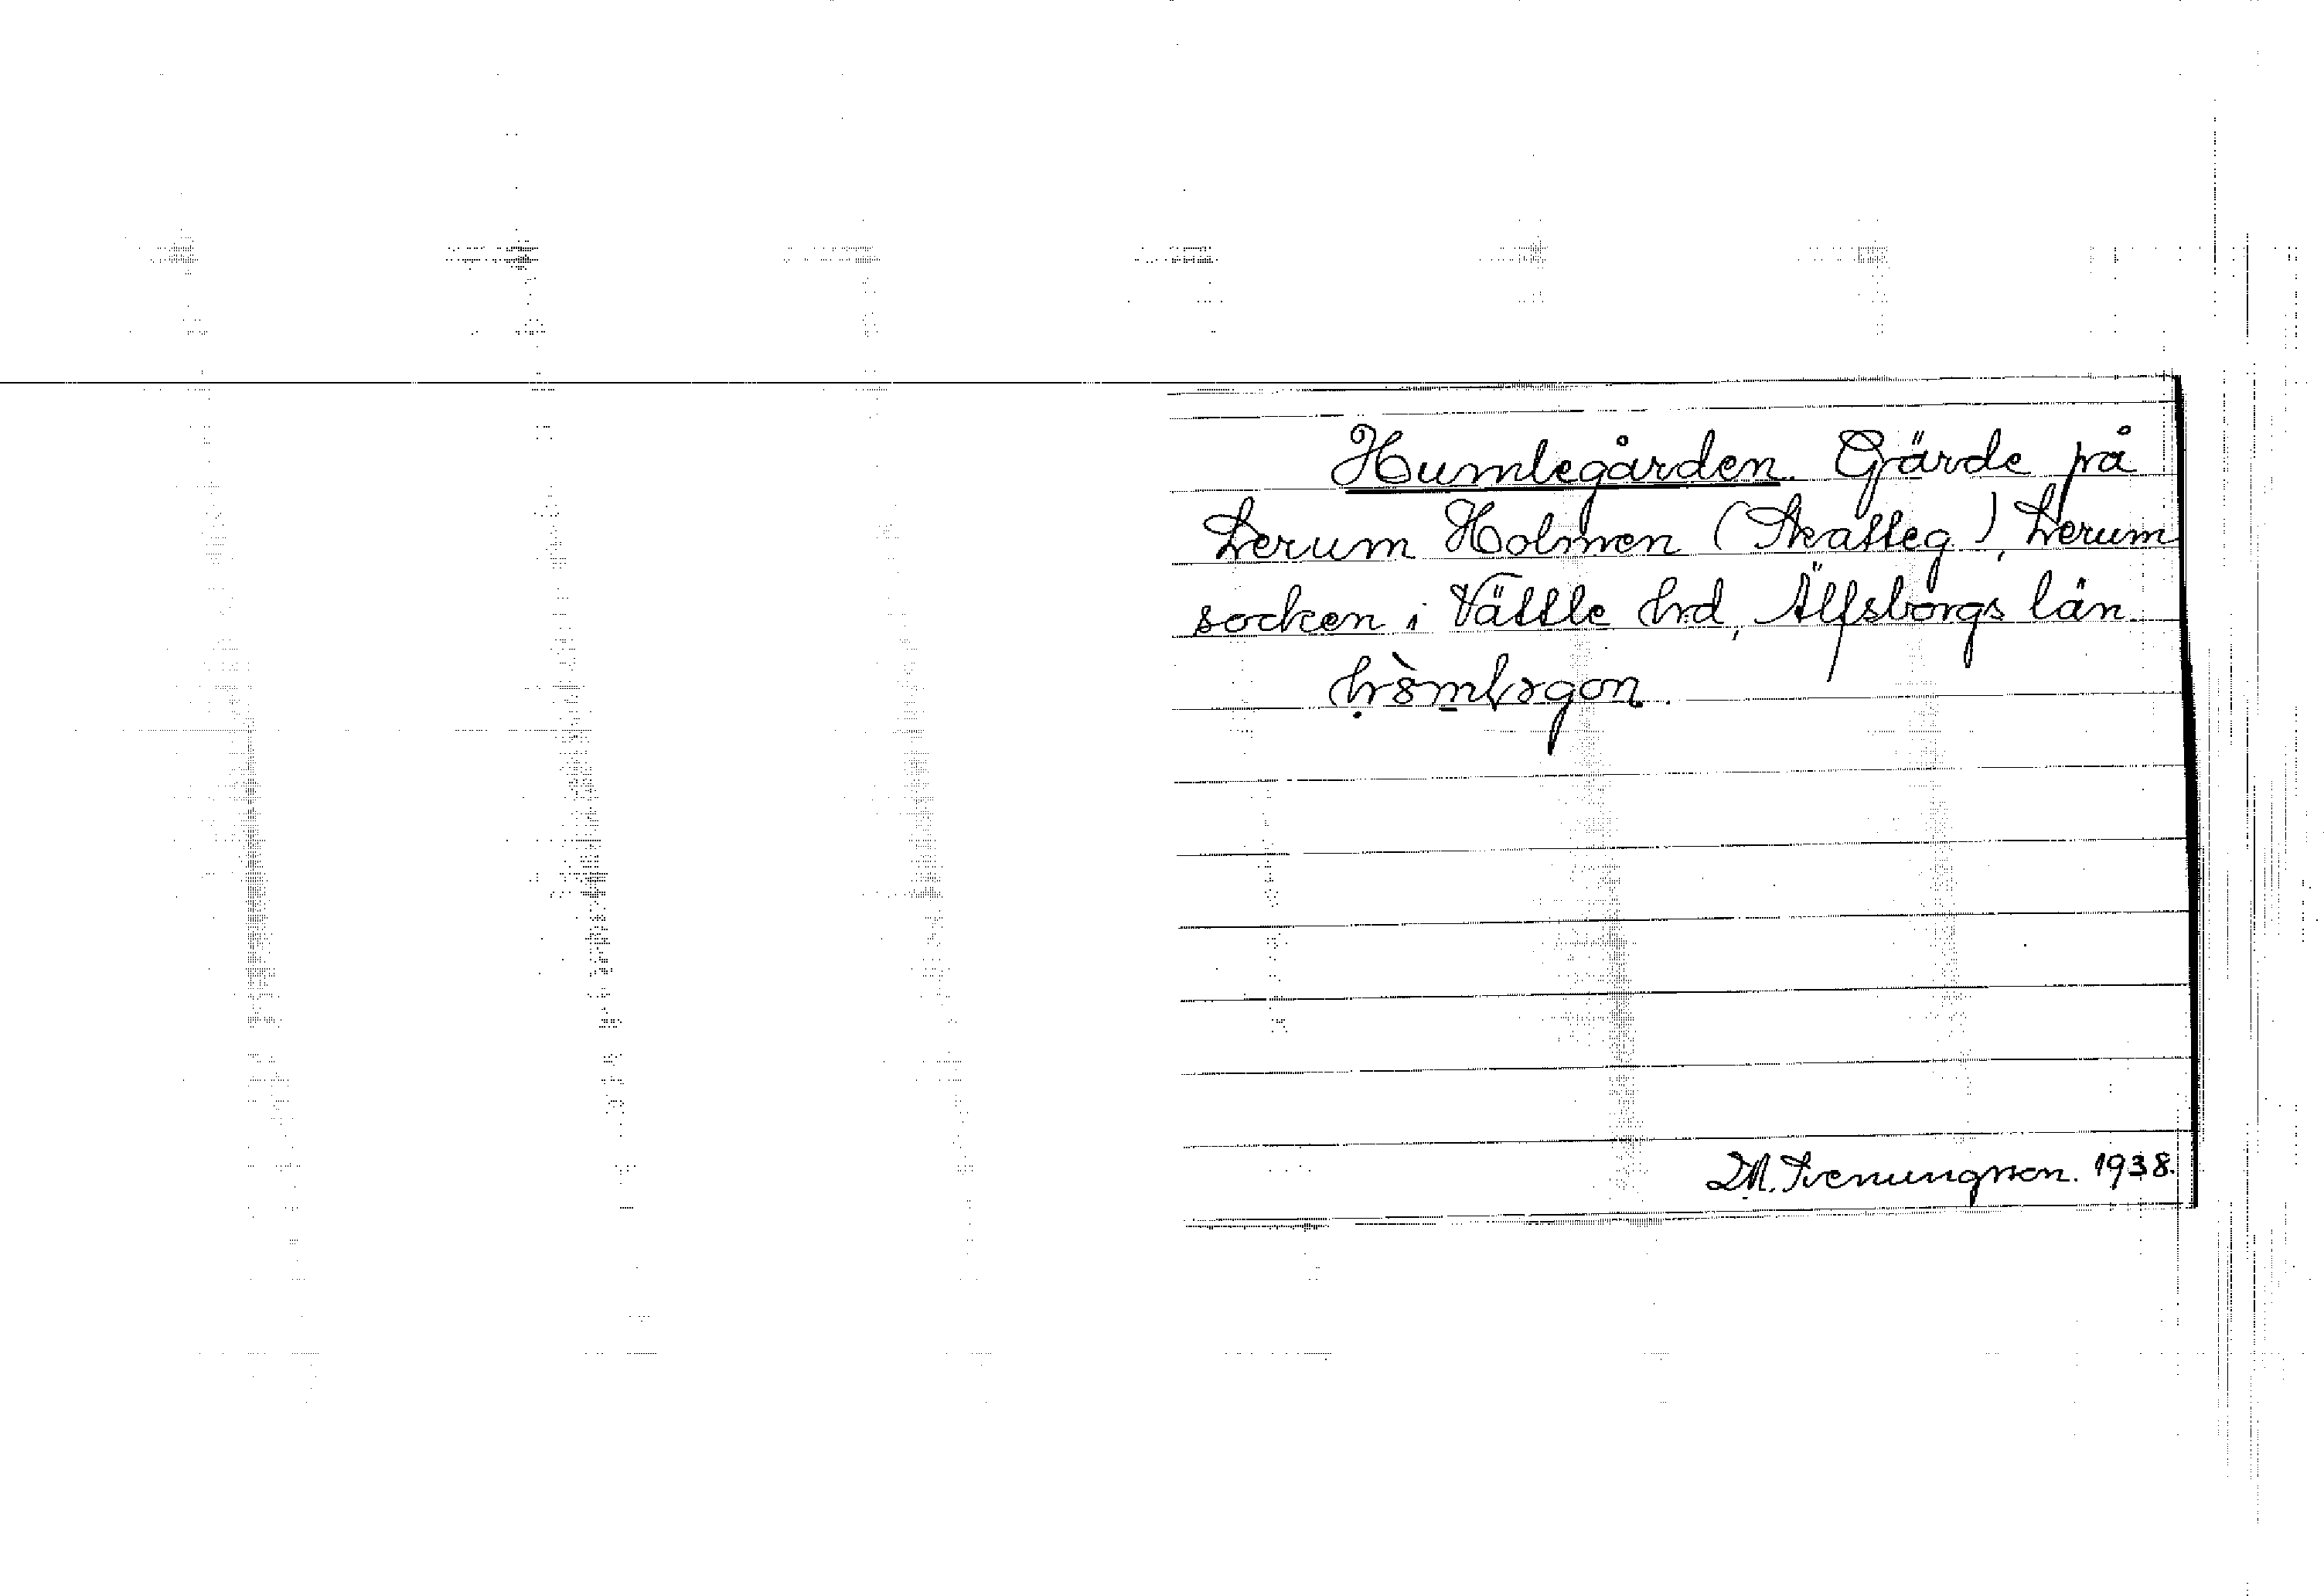 Humlegården. Gärde på
Lerum Holmen (Skatteg.), Lerum
socken i Vättle hrd, Älfsborgs län.
D.M. Svenungsson. 1938.